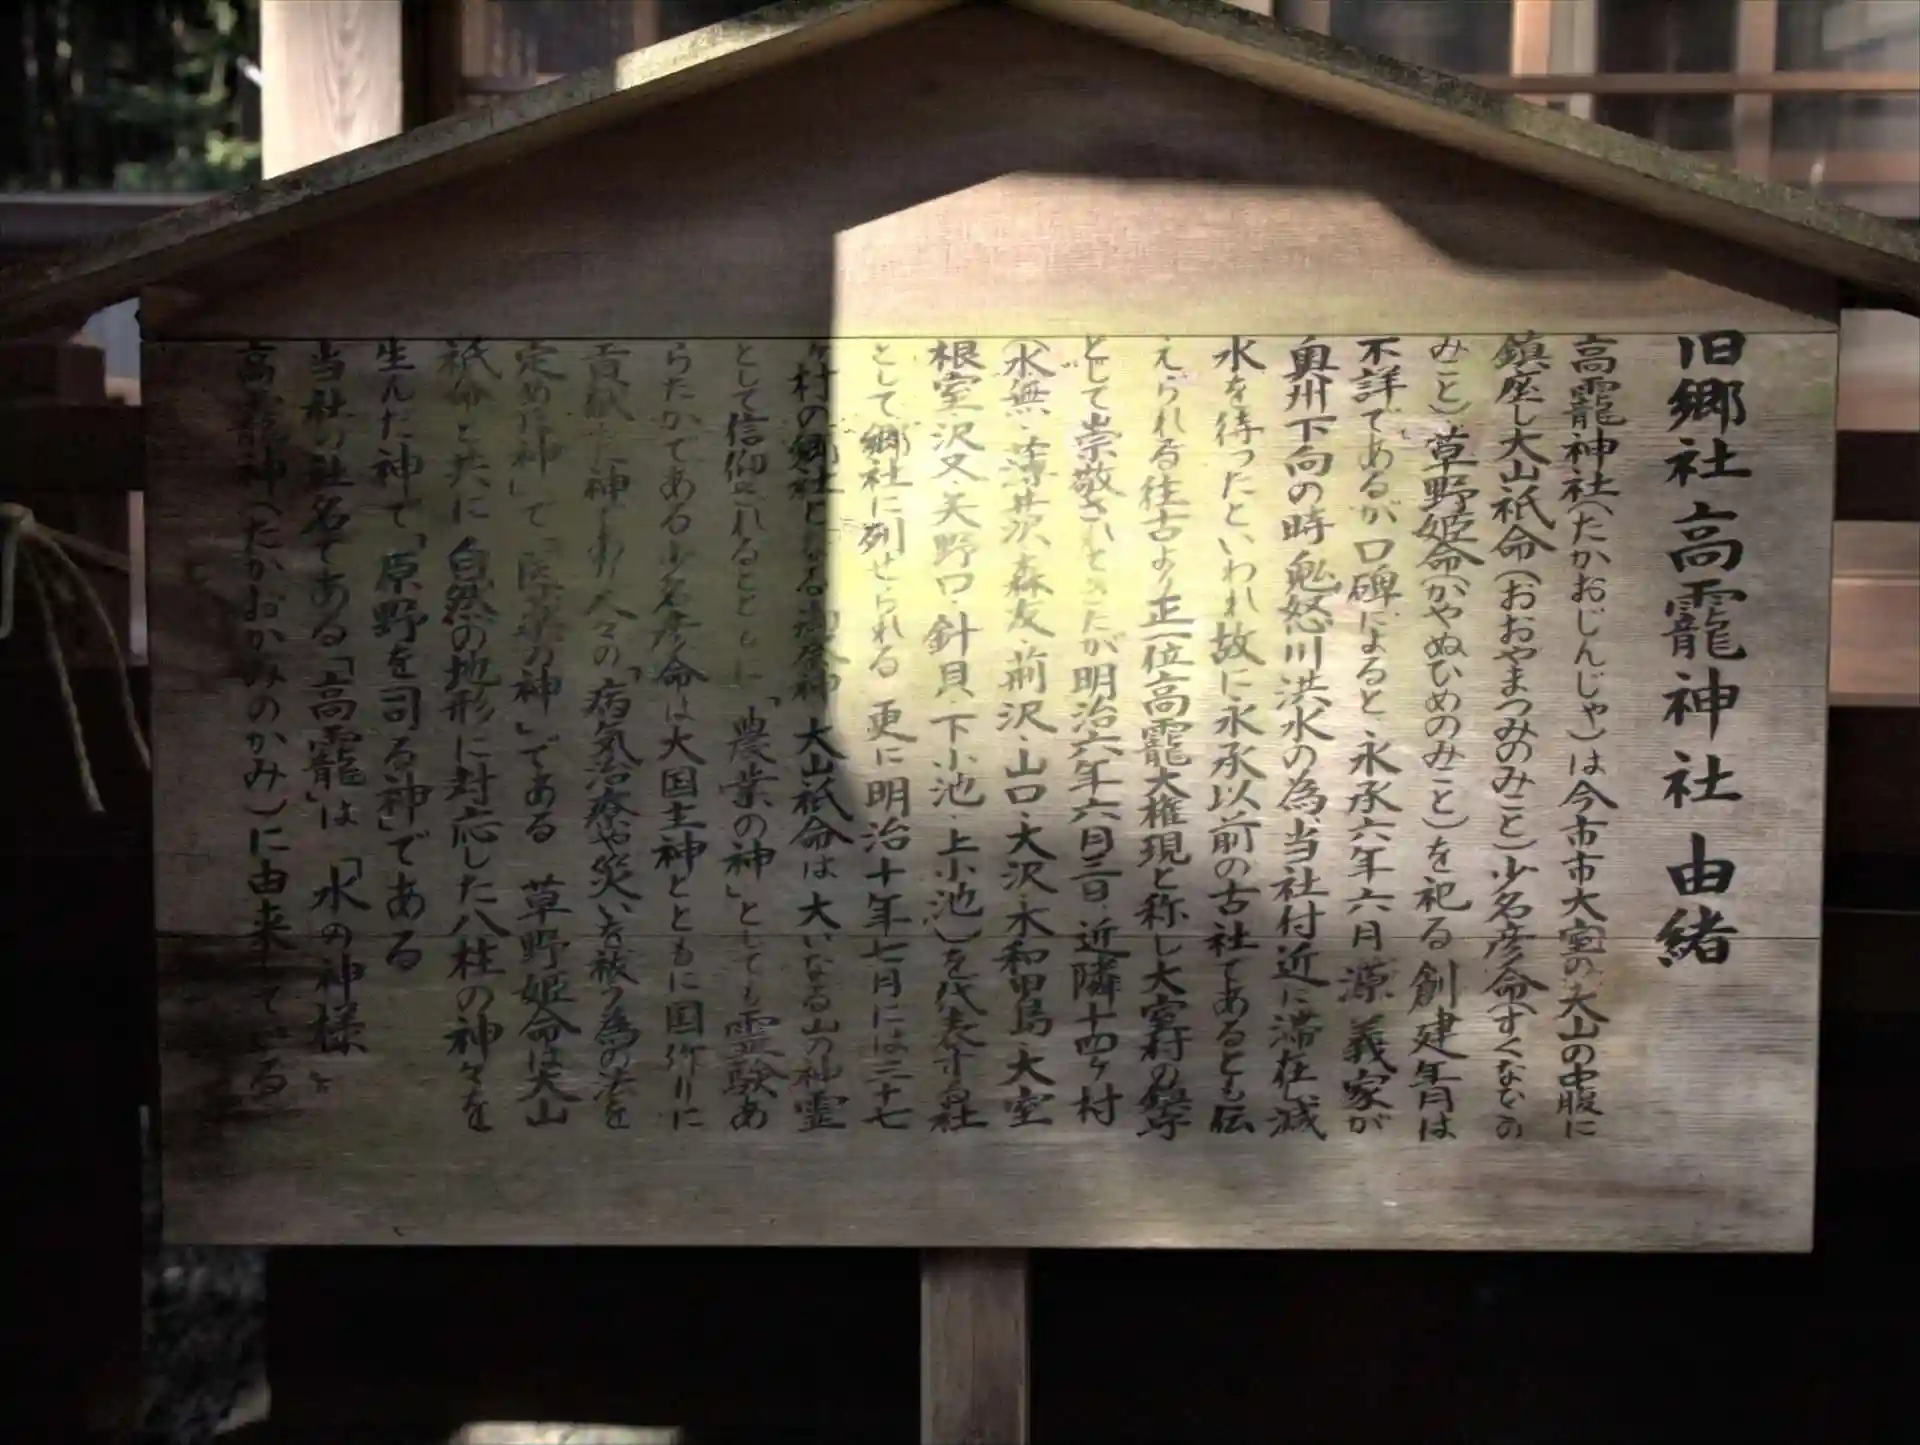 旧郷社高龗神社由緒
高龗神社(たかおじんじゃ)は今市市大室の大山の中腹に
鎮座し大山祇命(おおやまつみのみこと)少名彦命(すくなひこの
みこと)草野姫命(かやぬひめのみこと)を祀る 創建年月は
不詳であるが口碑によると、永承六年六月 源 義家が
奥州下向の時 鬼怒川洪水の為、当社付近に滞在し減
水を待ったといわれ故に永承以前の古社であるとも伝
えられる 往古より正一位高龗大権現と称し大室村の鎮守
として崇敬されてきたが明治六年六月三日 近隣十四ヶ村
(水無・薄井沢・森友・荊沢・山口・大沢・木和田島・大室
根室・沢又・矢野口・針貝・下小池・上小池)を代表する社
として郷社に列せられる 更に明治十年七月には三十七
ヶ村の郷社となる 大山祇命は大いなる山の神霊
として信仰されるとともに「農業の神」としても霊験あ
らたかである 少名彦命は大国主神とともに国作りに
貢献した神であり人々の「病気治療や災いを祓う為の法を
定めた神」で「医薬の神」である 草野姫命は大山
祇命と共に 自然の地形に対応した八柱の神々を
生んだ神で「原野を司る神」である
当社の社名である「高龗」は 「水の神様」
高龗神(たかおかみのかみ)に由来している